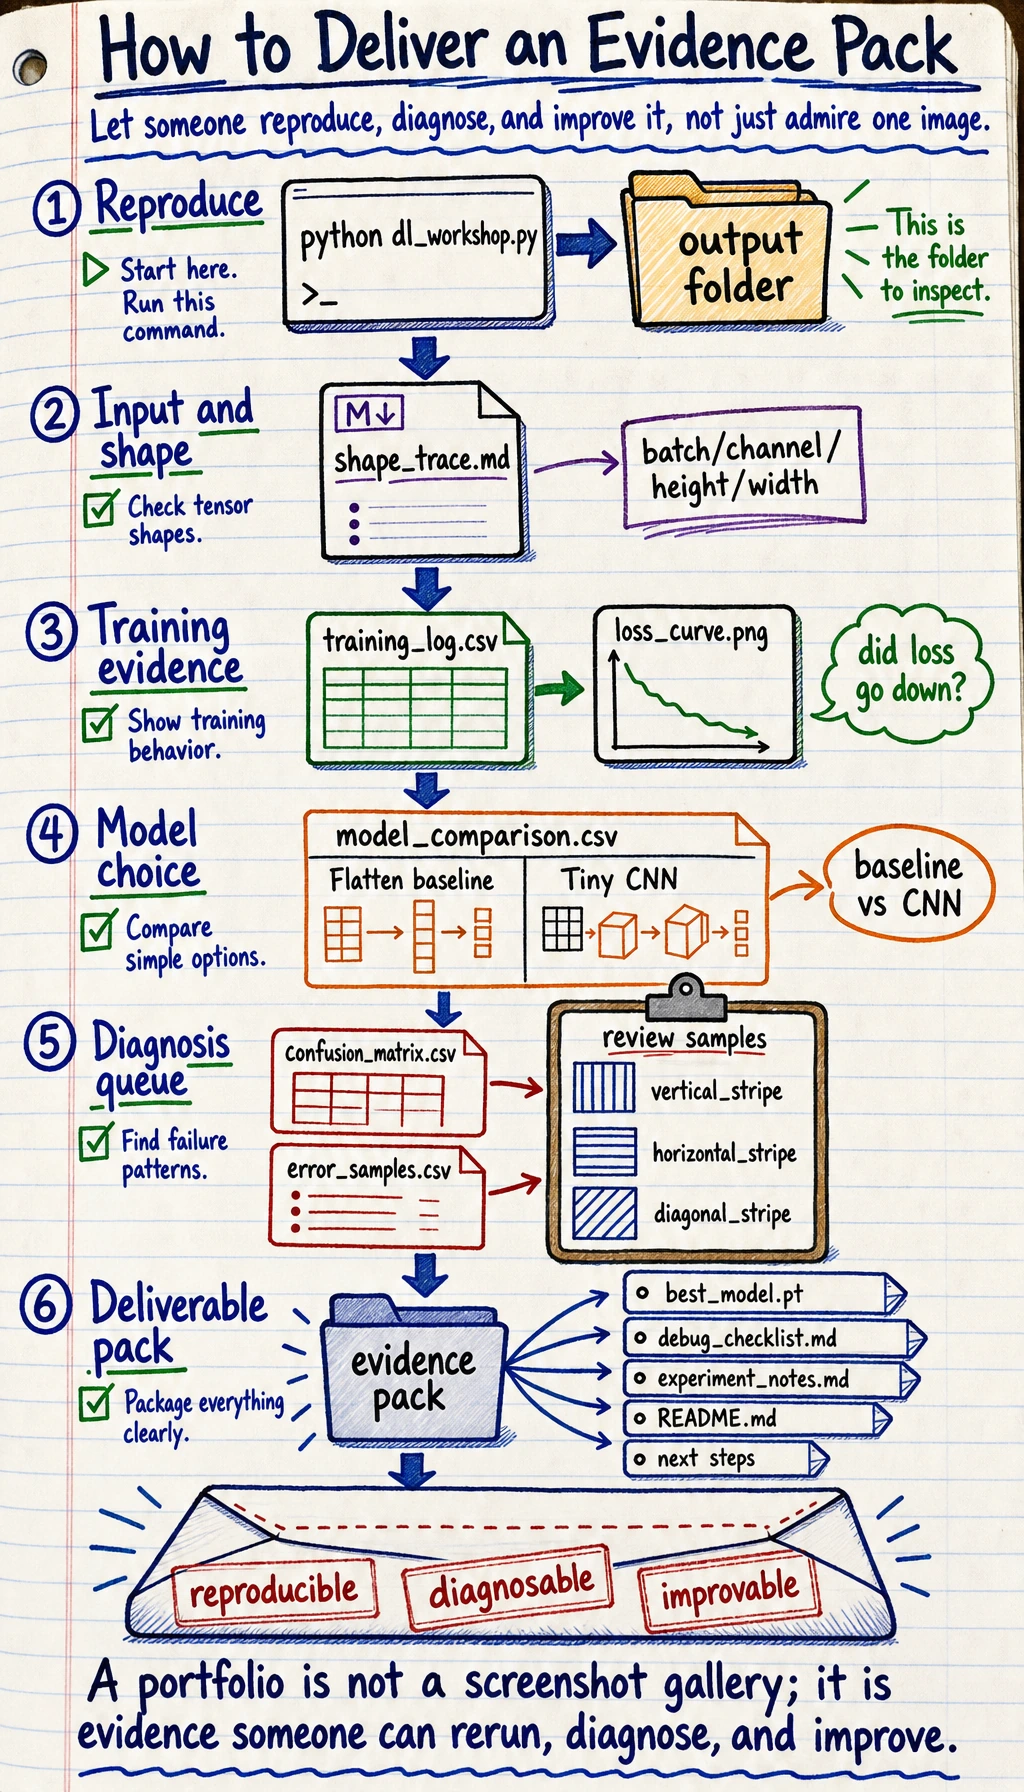 How to Deliver an Evidence Pack
Let someone reproduce, diagnose, and improve it, not just admire one image.
1 Reproduce
Start here.
Run this
command.
python dl_workshop.py
>_
output
folder
This is
the folder
to inspect.
2 Input and
shape
Check tensor
shapes.
M↓
shape_trace.md
batch/channel/
height/width
3 Training
evidence
Show training
behavior.
training_log.csv
loss_curve.png
did loss
go down?
4 Model
choice
Compare
simple options.
model_comparison.csv
Flatten baseline
Tiny CNN
baseline
vs CNN
5 Diagnosis
queue
Find failure
patterns.
Confusion_matrix.csv
error_samples.csv
review samples
vertical_stripe
horizontal_stripe
diagonal_stripe
6 Deliverable
pack
Package everything
clearly.
evidence
pack
best_model.pt
debug_checklist.md
experiment_notes.md
README.md
next steps
reproducible
diagnosable
improvable
A portfolio is not a screenshot gallery; it is
evidence someone can rerun, diagnose, and improve.